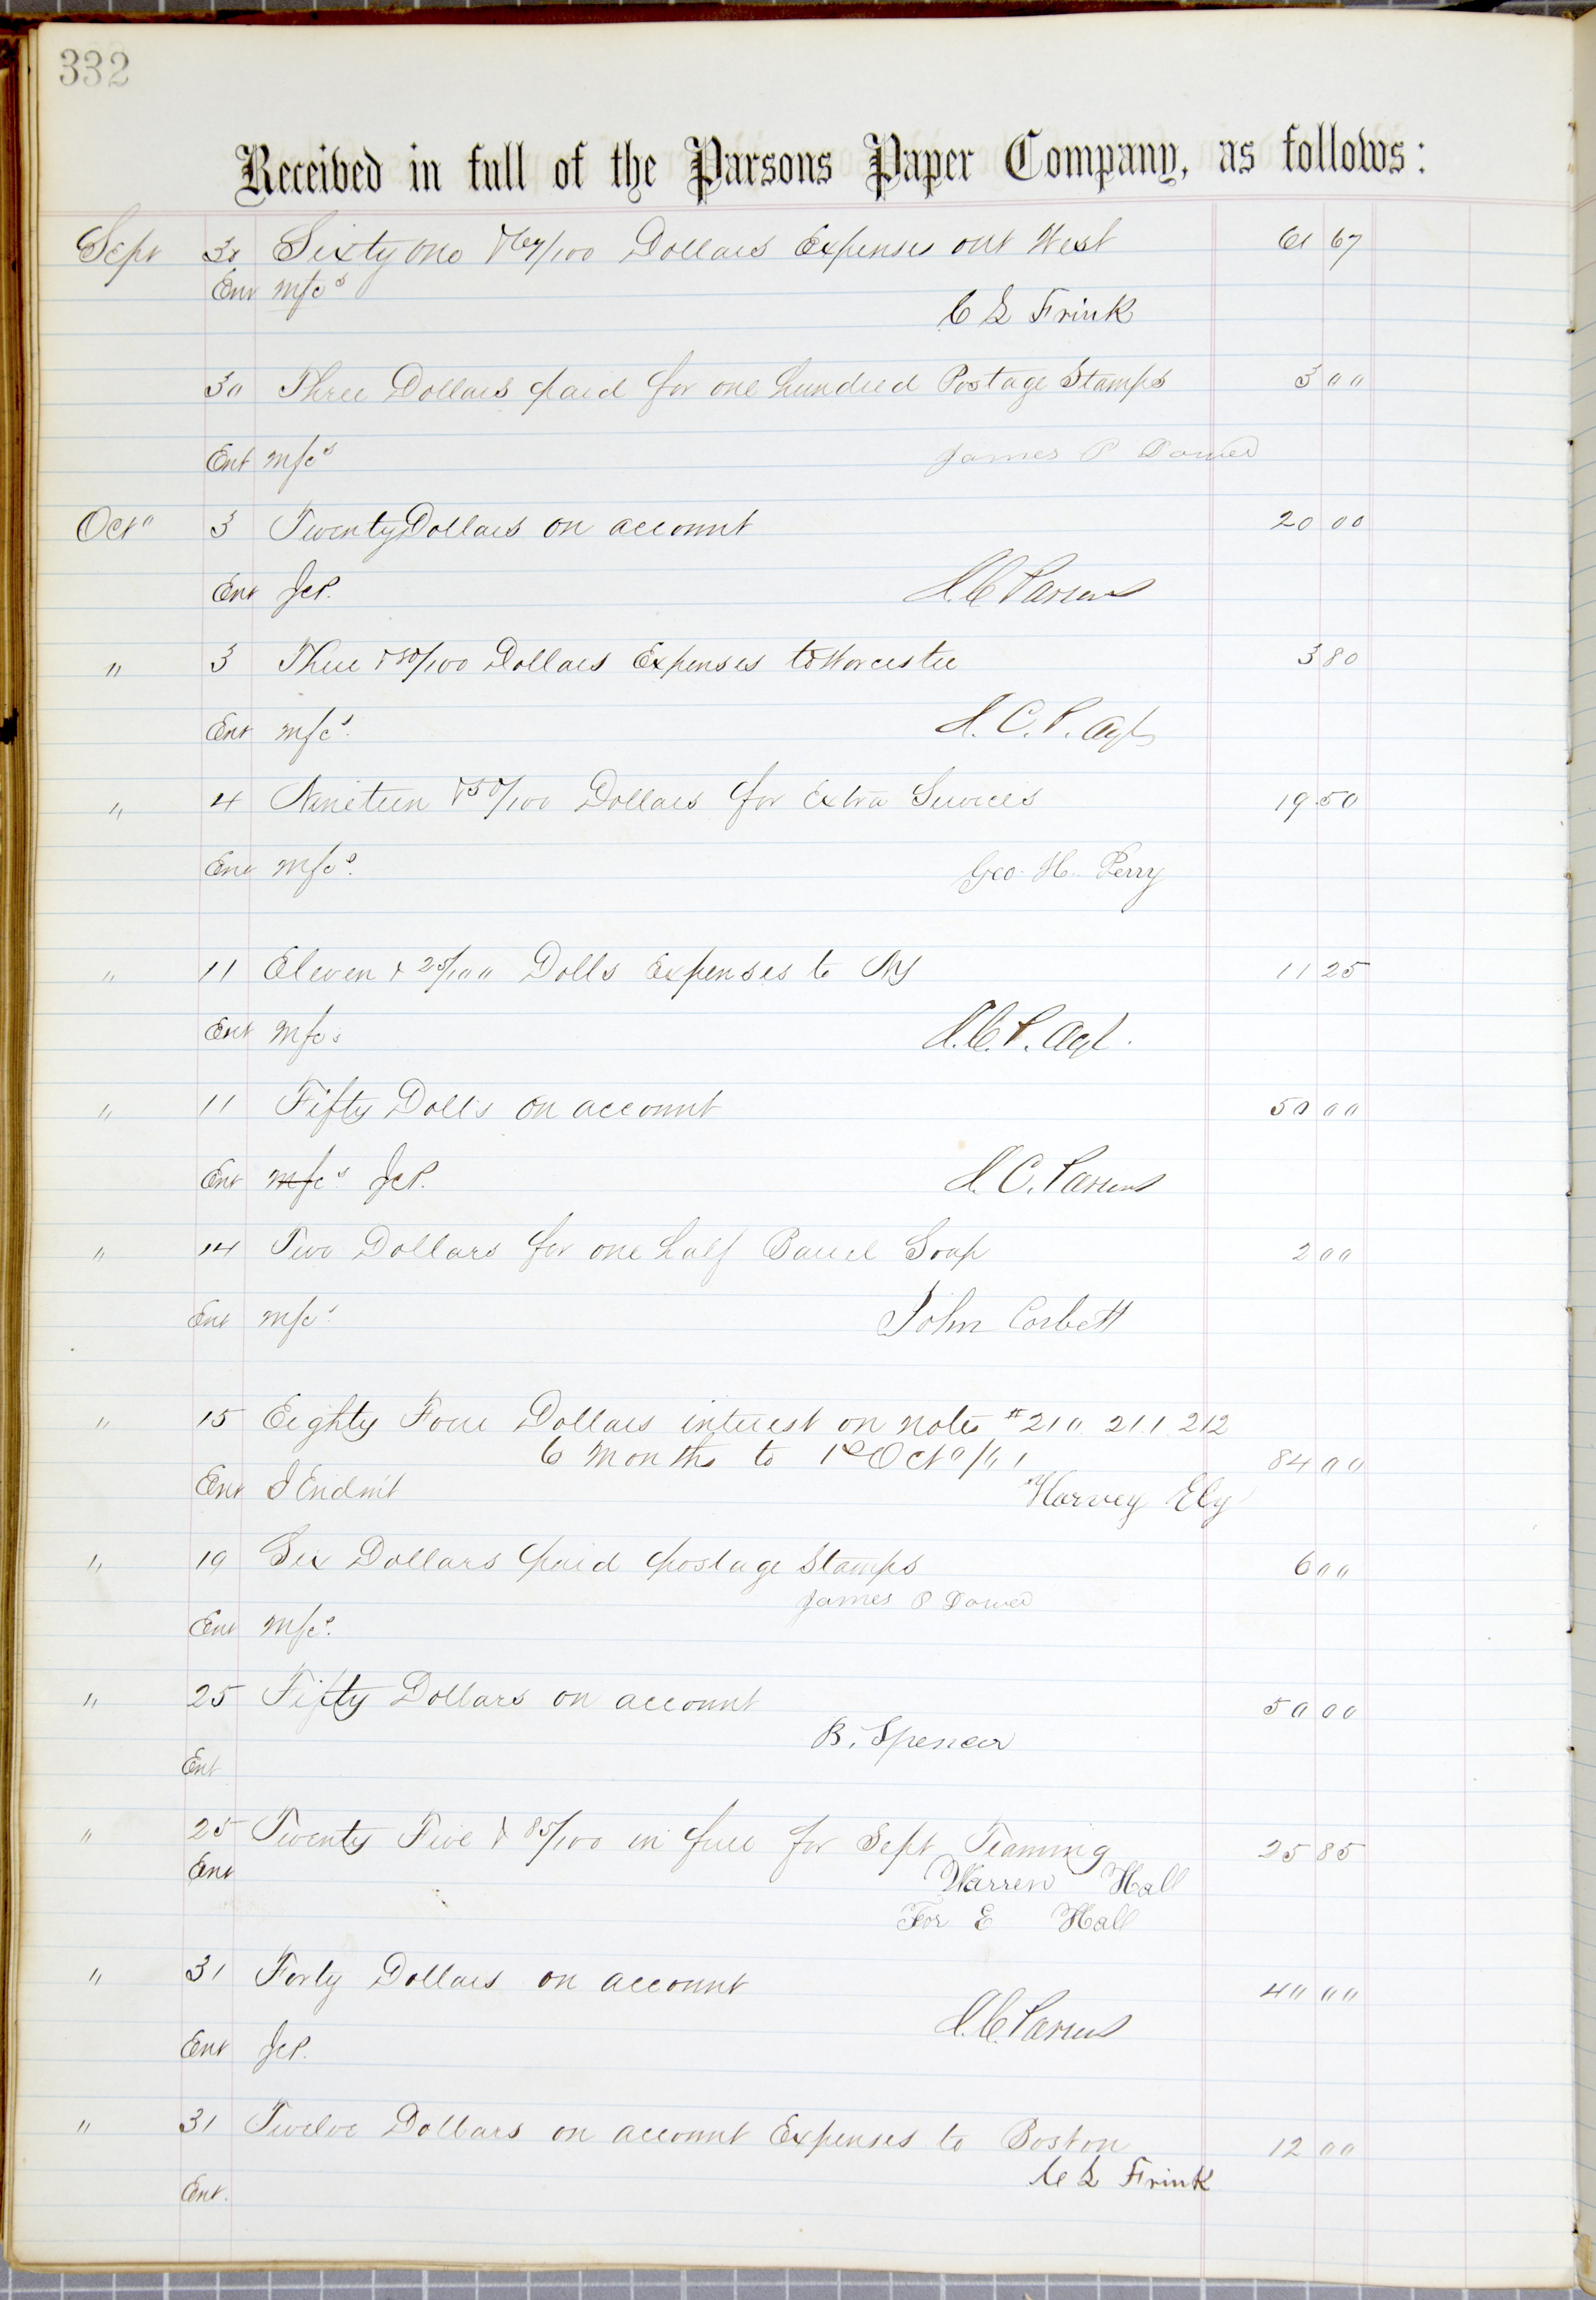 332
Received in full of the Parsons Paper Company, as follows:
Sept 30 Sixty one & 67/100 Dollars Expenses out West 61 67
Ent Mfcs
C L Frink
30 Three Dollars paid for one hundred Postage Stamps 3 00
Ent Mfcs
James P
Oct 3 Twenty Dollars on account 20 00
Ent JCP.
J. C Parsons
" 3 Three & 80/100 Dollars Expenses to Worcester 3 80
Ent Mfcs.
J. C. P. Agt
" 4 Nineteen & 50/100 Dollars for Extra Services 19 50
Ent Mfcs.
Geo. H. Perry
" 11 Eleven & 25/100 Dolls Expenses to NY 11 25
Ent Mfcs
J. C. P. Agt.
" 11 Fifty Dolls on account 50 00
Ent Mfcs JCP.
J. C. Parsons
" 14 Two Dollars for one half Barrel Soap 2 00
Ent Mfcs.
John Corbett
" 15 Eighty Four Dollars interest on notes #210 211 212
6 Months to 1st Oct 84 00
Ent
Harvey Ely
" 19 Six Dollars paid postage Stamps 6 00
James P
Ent Mfcs.
" 25 Fifty Dollars on account 50 00
B. Spencer
Ent
" 25 Twenty Five & 85/100 in full for Sept Teaming 25 85
Ent Warren Hall
For E Hall
" 31 Forty Dollars on account 40 00
J. C. Parsons
Ent JCP.
" 31 Twelve Dollars on account Expenses to Boston 12 00
C L Frink
Ent.